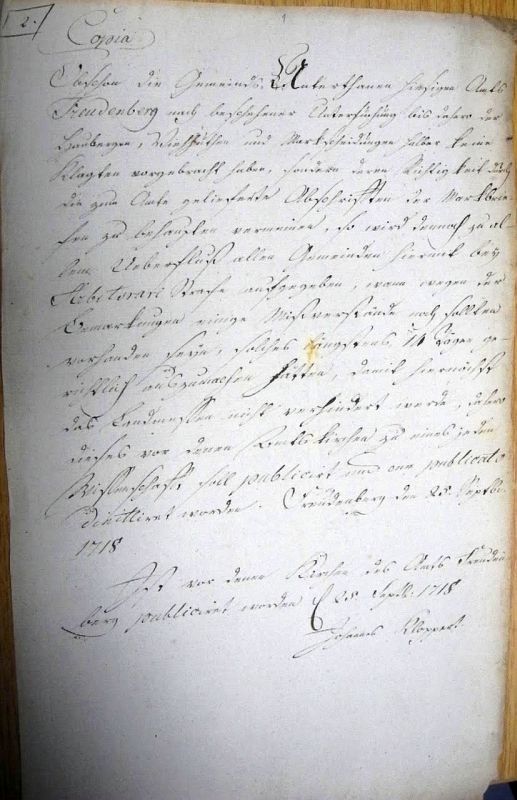 2.
1
Copia
Obschon die Gemeinds Unterthanen hiesigen Amts
Freudenberg nach beschehener Untersuchung bis dahero der
Haubergen, Viehhuthen und Markscheidungen halber keine
Klagten vorgebracht haben, sondern deren Richtigkeit durch
die zum Amte gelieferte Abschrifften der Markbrie-
fen zu behaupten vermeinen, so wird dennoch zu al-
lem Ueberfluß allen Gemeinden hiermit bey
Arbitrari Strafe aufgegeben, wann wegen der
Gemarkungen einige Mißverstände noch sollten
vorhanden seyn, solches längstens 14 Tägen ge-
richtlich auszumachen hätten, damit hiernächst
das Landmessen nicht verhindert werde, dahero
dieses vor denen Amtskirchen zu eines jeden
Wissenschafft soll publicirt und
worden. Freudenberg den 25. Septbr.
1718
Ist vor denen Kirchen des Amts Freuden-
berg publiciret worden d 25 Septb. 1718
Johannes Kloppert.